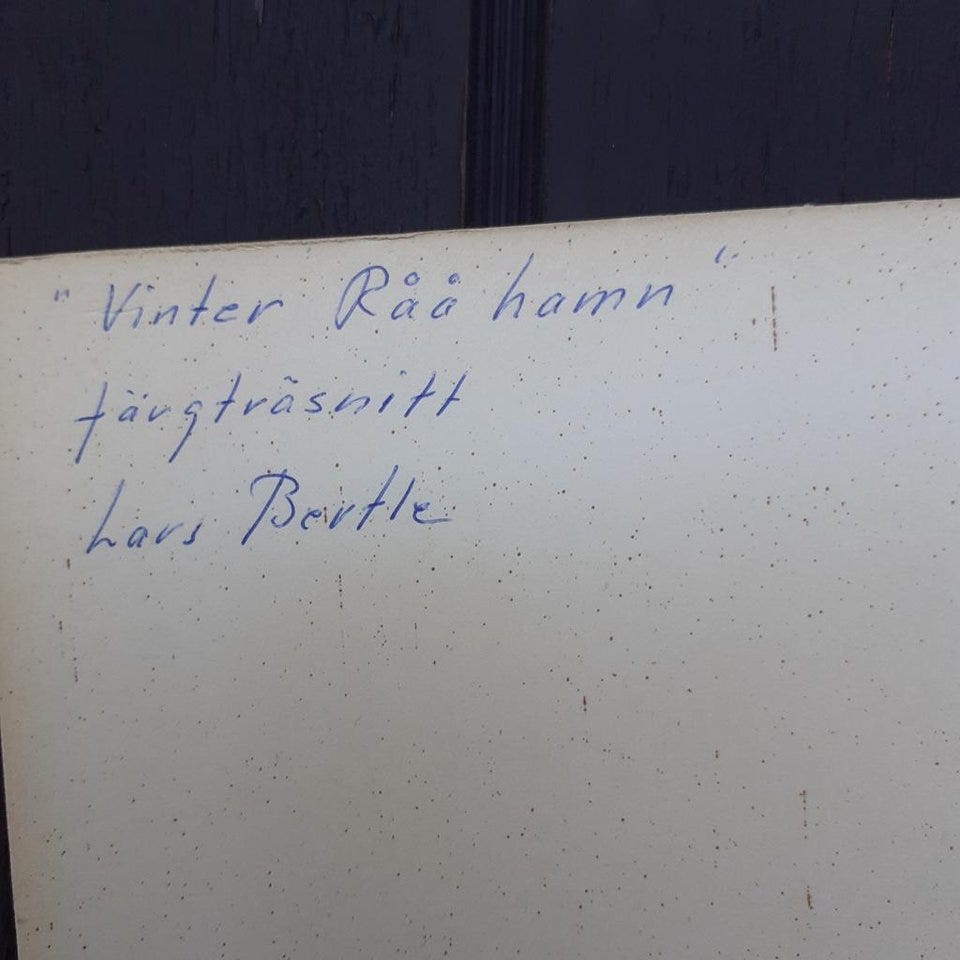 "Vinter Råå hamn"
färgträsnitt
Lars Bertle